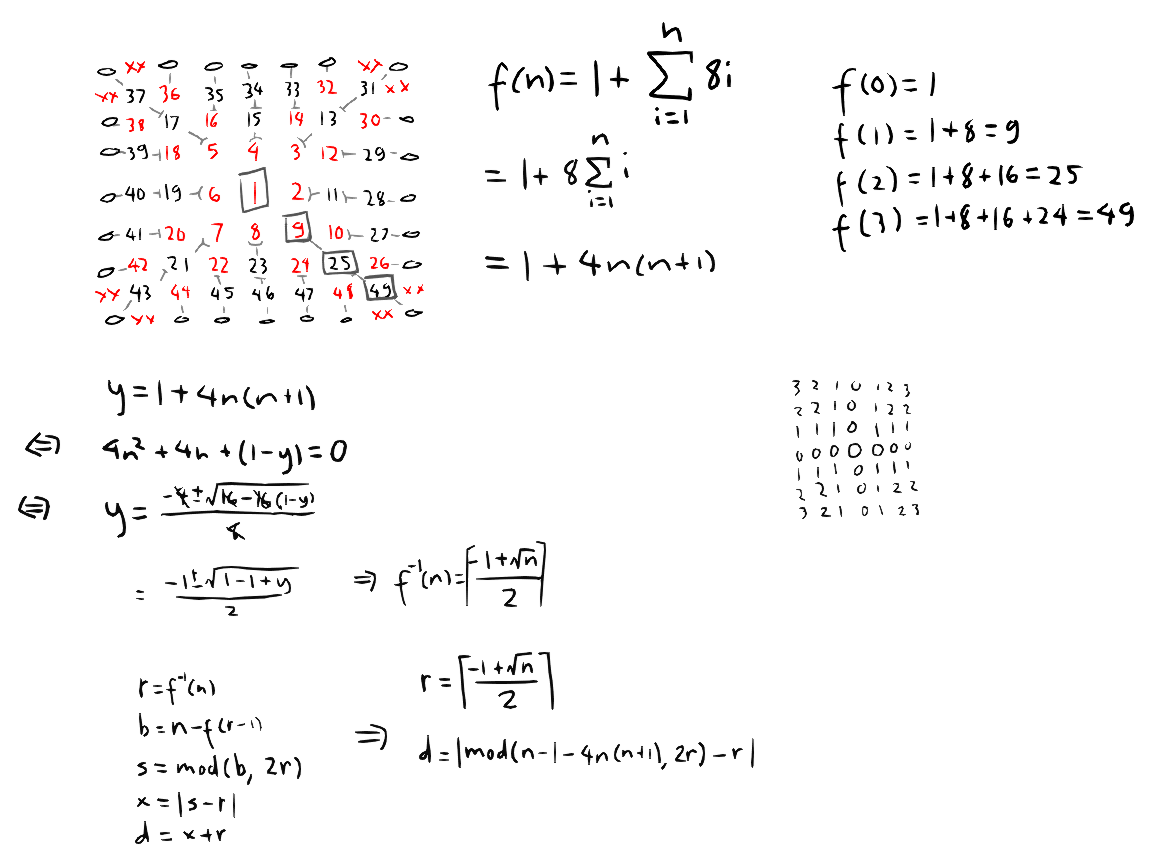 xx xx
xx 37 36 35 34 33 32 31 xx
38 17 16 15 14 13 30
39 18 5 4 3 12 29
40 19 6 1 2 11 28
41 20 7 8 9 10 27
42 21 22 23 24 25 26
xx 43 44 45 46 47 48 49 xx
xx xx
f(n) = 1 + ∑_{i=1}^{n} 8i
= 1 + 8∑_{i=1}^{n} i
= 1 + 4n(n+1)
f(0) = 1
f(1) = 1+8 = 9
f(2) = 1+8+16 = 25
f(3) = 1+8+16+24 = 49
y = 1 + 4n(n+1)
⇔ 4n² + 4n + (1-y) = 0
⇔ y = (-4 ± √(16 - 16(1-y))) / 8
= (-1 ± √(1-1+y)) / 2 ⇒ f⁻¹(n) = ⌈(-1+√n) / 2⌉
3 2 1 0 1 2 3
2 2 1 0 1 2 2
1 1 1 0 1 1 1
0 0 0 0 0 0 0
1 1 1 0 1 1 1
2 2 1 0 1 2 2
3 2 1 0 1 2 3
r = f⁻¹(n)
b = n - f(r-1)
s = mod(b, 2r)
x = |s-r|
d = x+r
⇒ r = ⌈(-1+√n) / 2⌉
d = |mod(n-1-4n(n+1), 2r) - r|